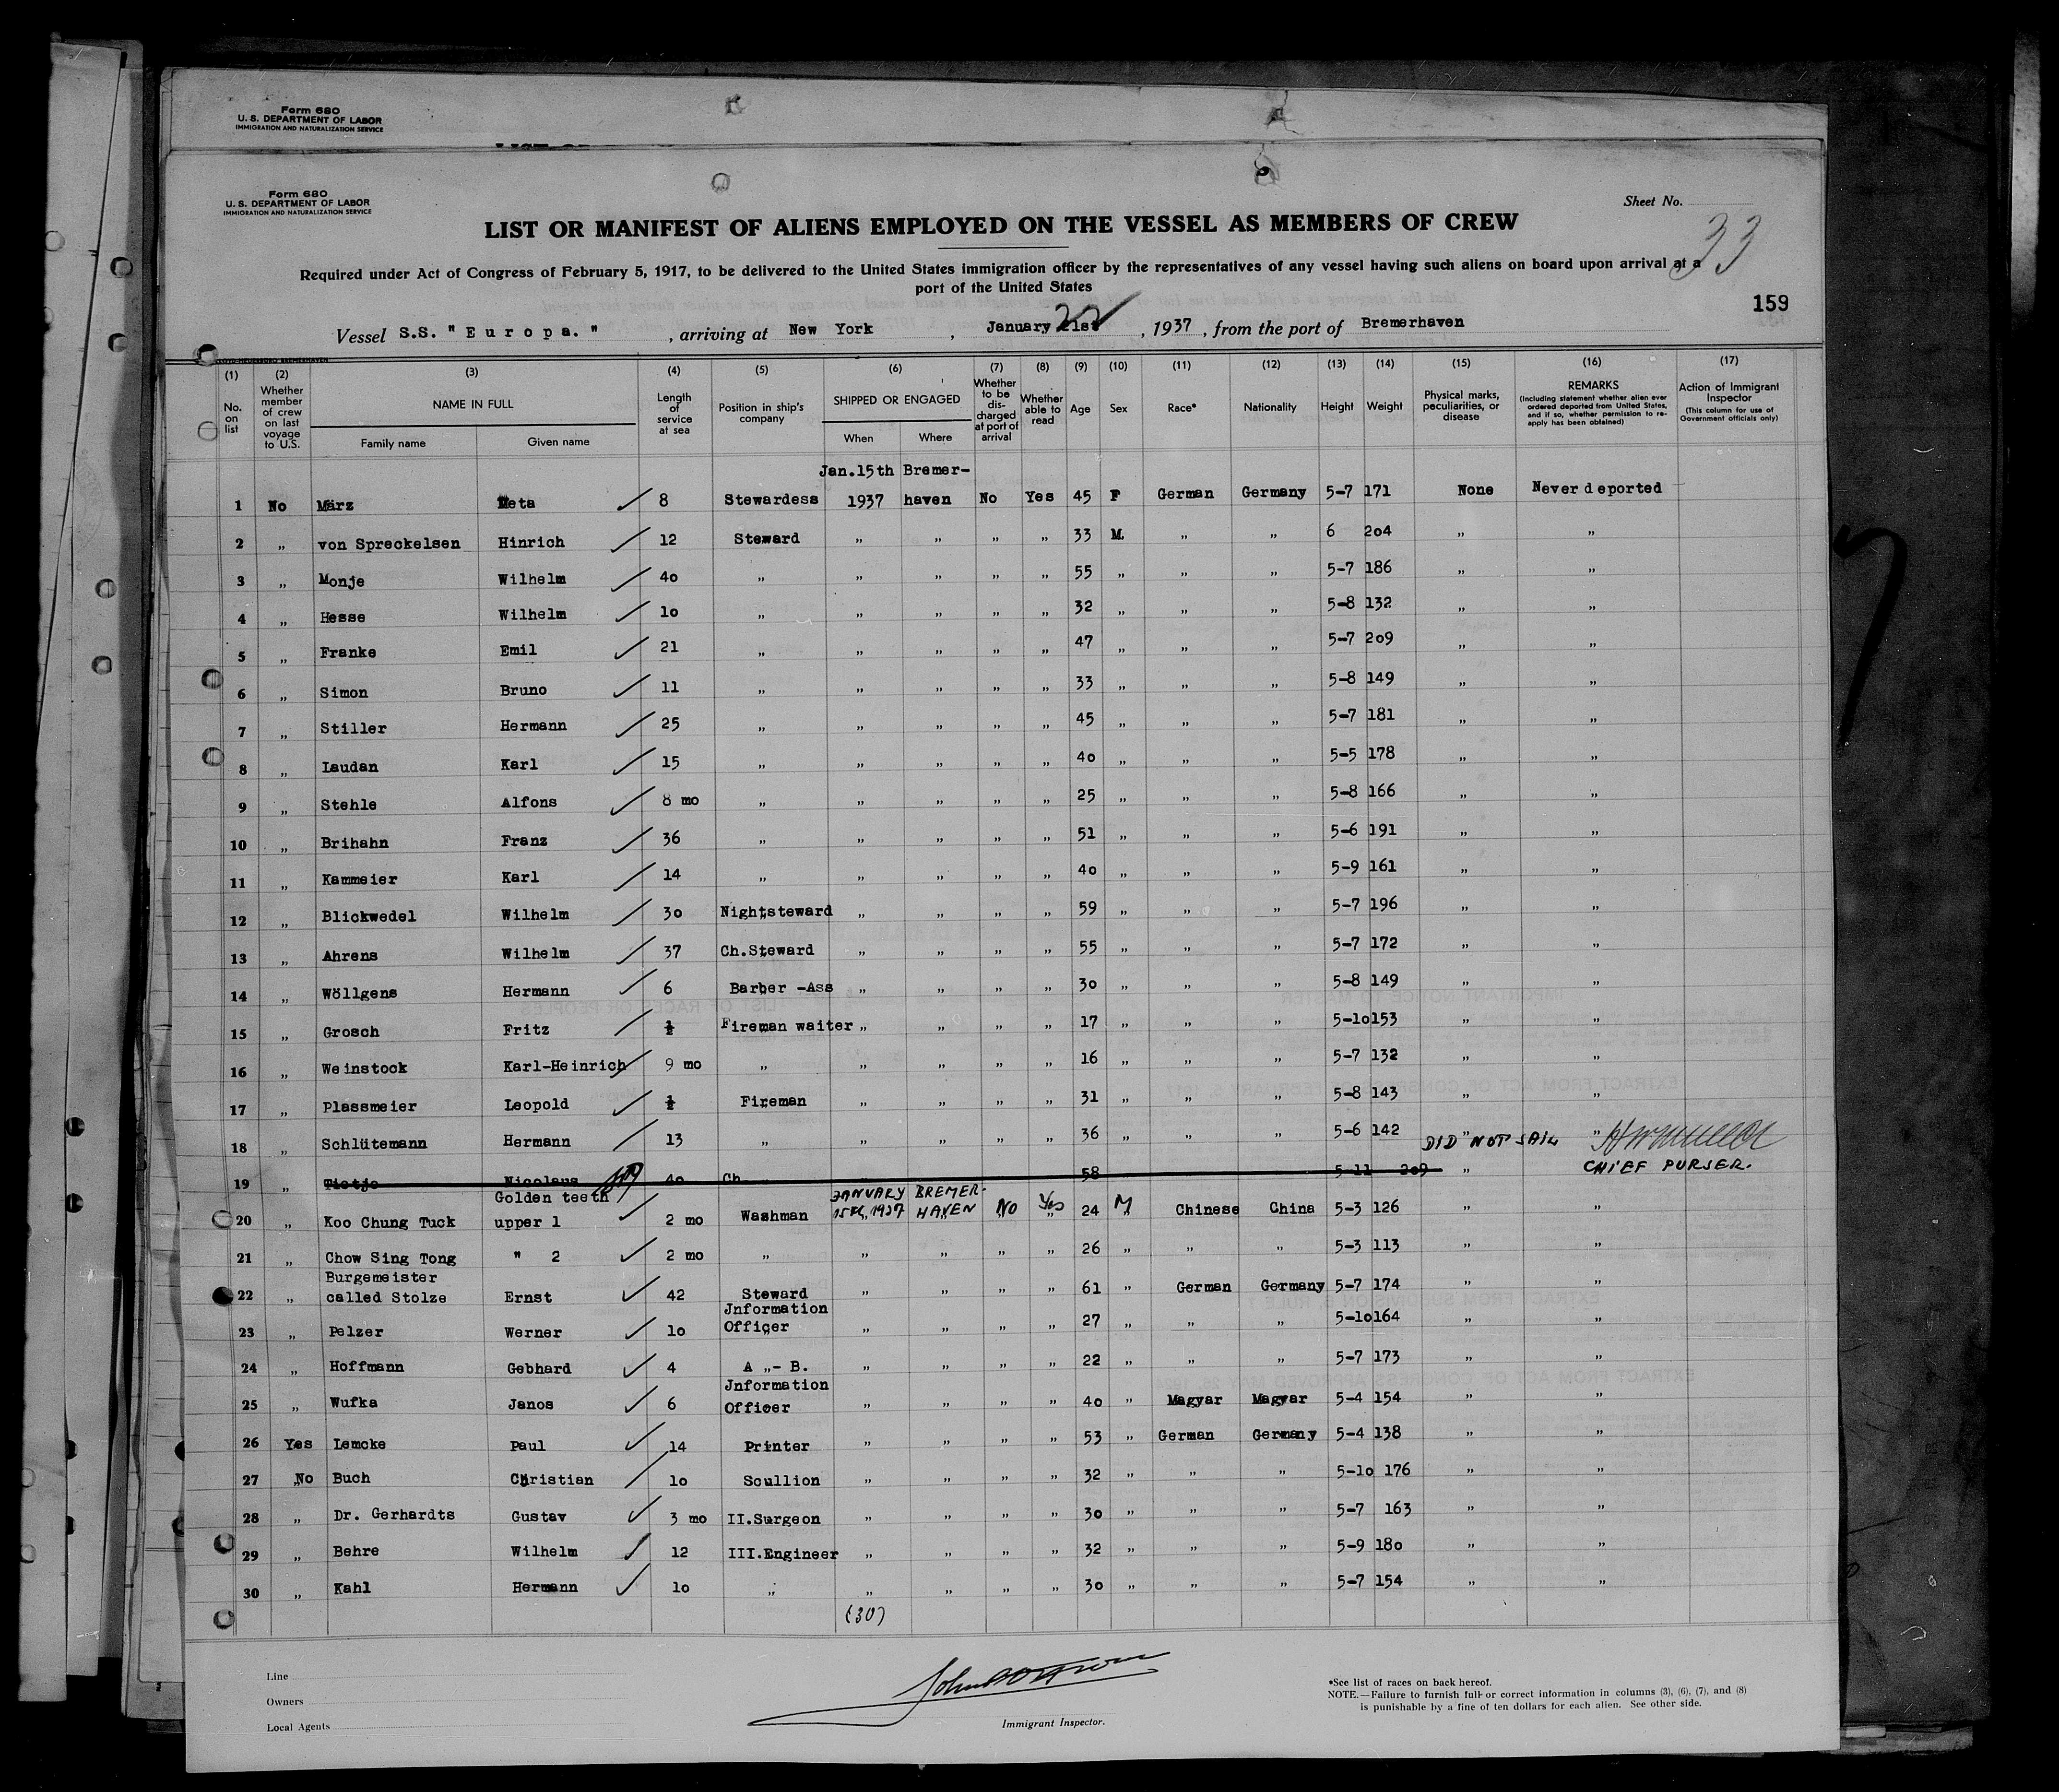 Form 680
U. S. DEPARTMENT OF LABOR
IMMIGRATION AND NATURALIZATION SERVICE
Form 680
U. S. DEPARTMENT OF LABOR
IMMIGRATION AND NATURALIZATION SERVICE
Sheet No.
33
LIST OR MANIFEST OF ALIENS EMPLOYED ON THE VESSEL AS MEMBERS OF CREW
Required under Act of Congress of February 5, 1917, to be delivered to the United States immigration officer by the representatives of any vessel having such aliens on board upon arrival at a
port of the United States
159
Vessel S.S. "Europa." , arriving at New York , January 21st 22 , 1937 , from the port of Bremerhaven
(1) (2) (3) (4) (5) (6) (7) (8) (9) (10) (11) (12) (13) (14) (15) (16) (17)
No. on list
Whether member of crew on last voyage to U.S.
NAME IN FULL
Family name Given name
Length of service at sea
Position in ship's company
SHIPPED OR ENGAGED
When Where
Whether to be discharged at port of arrival
Whether able to read
Age
Sex
Race*
Nationality
Height
Weight
Physical marks, peculiarities, or disease
REMARKS
(Including statement whether alien ever ordered deported from United States, and if so, whether permission to reapply has been obtained)
Action of Immigrant Inspector
(This column for use of Government officials only)
Jan.15th Bremer-
1 No März Meta 8 Stewardess 1937 haven No Yes 45 F German Germany 5-7 171 None Never deported
2 „ von Spreckelsen Hinrich 12 Steward „ „ „ „ 33 M. „ „ 6 204 „ „
3 „ Monje Wilhelm 40 „ „ „ „ „ 55 „ „ „ 5-7 186 „ „
4 „ Hesse Wilhelm 10 „ „ „ „ „ 32 „ „ „ 5-8 132 „ „
5 „ Franke Emil 21 „ „ „ „ „ 47 „ „ „ 5-7 209 „ „
6 „ Simon Bruno 11 „ „ „ „ „ 33 „ „ „ 5-8 149 „ „
7 „ Stiller Hermann 25 „ „ „ „ „ 45 „ „ „ 5-7 181 „ „
8 „ Laudan Karl 15 „ „ „ „ „ 40 „ „ „ 5-5 178 „ „
9 „ Stehle Alfons 8 mo „ „ „ „ „ 25 „ „ „ 5-8 166 „ „
10 „ Brihahn Franz 36 „ „ „ „ „ 51 „ „ „ 5-6 191 „ „
11 „ Kammeier Karl 14 „ „ „ „ „ 40 „ „ „ 5-9 161 „ „
12 „ Blickwedel Wilhelm 30 Nightsteward „ „ „ „ 59 „ „ „ 5-7 196 „ „
13 „ Ahrens Wilhelm 37 Ch.Steward „ „ „ „ 55 „ „ „ 5-7 172 „ „
14 „ Wöllgens Hermann 6 Barber -Ass „ „ „ „ 30 „ „ „ 5-8 149 „ „
15 „ Grosch Fritz ½ Fireman waiter „ „ „ „ 17 „ „ „ 5-10 153 „ „
16 „ Weinstock Karl-Heinrich 9 mo „ „ „ „ „ 16 „ „ „ 5-7 132 „ „
17 „ Plassmeier Leopold ½ Fireman „ „ „ „ 31 „ „ „ 5-8 143 „ „
18 „ Schlütemann Hermann 13 „ „ „ „ „ 36 „ „ „ 5-6 142 „ „
DID NOT SAIL
19 „ Tietje Nicolaus 40 Ch 58 5-11 209 „ CHIEF PURSER.
Golden teeth JANUARY BREMER-
20 „ Koo Chung Tuck upper 1 2 mo Washman 15th, 1937 HAVEN No Yes 24 M Chinese China 5-3 126 „ „
21 „ Chow Sing Tong " 2 2 mo „ „ „ „ „ 26 „ „ „ 5-3 113 „ „
Burgemeister
22 „ called Stolze Ernst 42 Steward „ „ „ „ 61 „ German Germany 5-7 174 „ „
Jnformation
23 „ Pelzer Werner 10 Officer „ „ „ „ 27 „ „ „ 5-10 164 „ „
24 „ Hoffmann Gebhard 4 A „- B. „ „ „ „ 22 „ „ „ 5-7 173 „ „
Jnformation
25 „ Wufka Janos 6 Officer „ „ „ „ 40 „ Magyar Magyar 5-4 154 „ „
26 Yes Lemcke Paul 14 Printer „ „ „ „ 53 „ German Germany 5-4 138 „ „
27 No Buch Christian 10 Scullion „ „ „ „ 32 „ „ „ 5-10 176 „ „
28 „ Dr. Gerhardts Gustav 3 mo II.Surgeon „ „ „ „ 30 „ „ „ 5-7 163 „ „
29 „ Behre Wilhelm 12 III.Engineer „ „ „ „ 32 „ „ „ 5-9 180 „ „
30 „ Kahl Hermann 10 „ „ „ „ „ 30 „ „ „ 5-7 154 „ „
(30)
Line
Owners
Local Agents
Immigrant Inspector.
*See list of races on back hereof.
NOTE.—Failure to furnish full or correct information in columns (3), (6), (7), and (8)
is punishable by a fine of ten dollars for each alien. See other side.